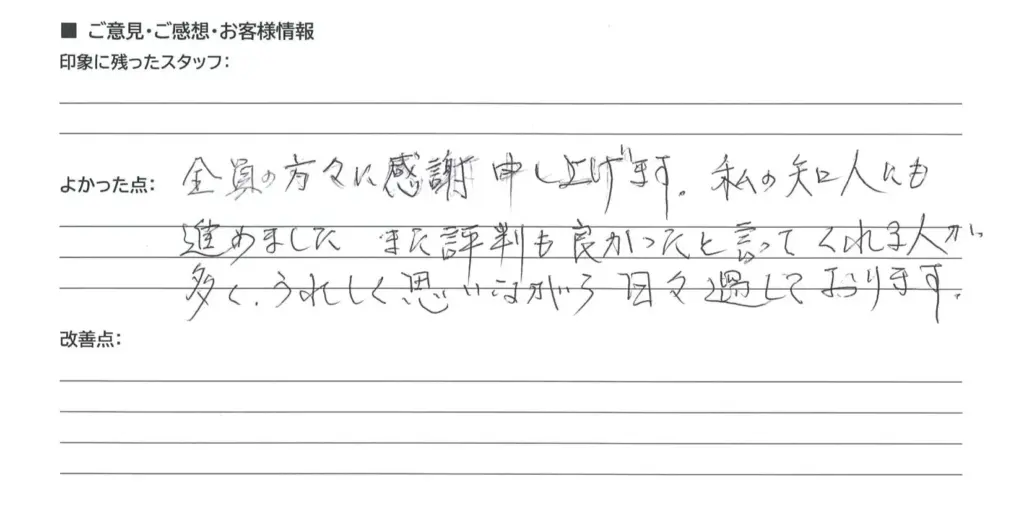 ■ ご意見・ご感想・お客様情報
印象に残ったスタッフ：
よかった点： 全員の方々に感謝申し上げます。私の知人にも
進めました また評判も良かったと言ってくれる人が
多く、うれしく思いながら日々過しております。
改善点：